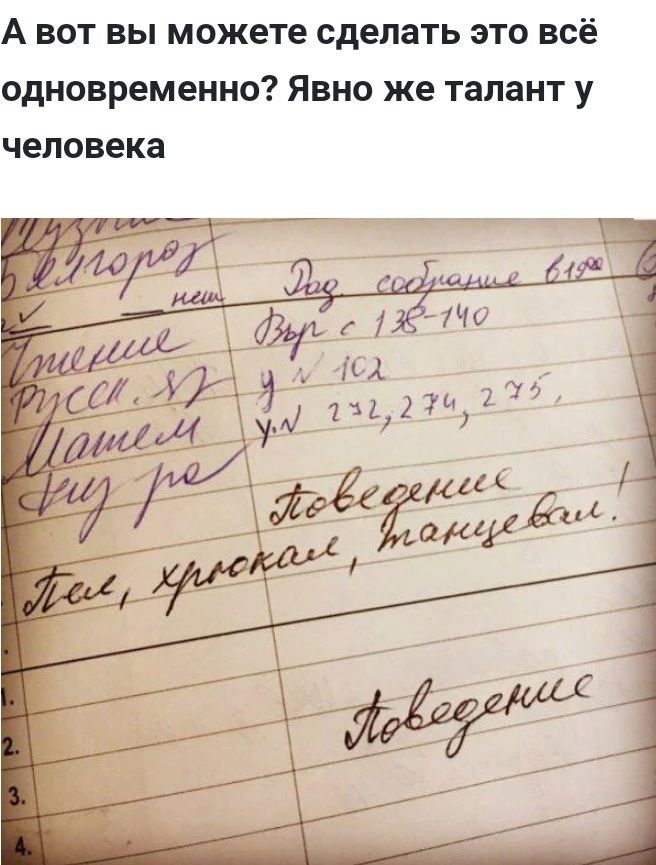 А вот вы можете сделать это всё
одновременно? Явно же талант у
человека
Белгород
Род собрание в 19⁰⁰
Чтение с 138-140
Русск. яз у № 102
Матем у.№ 272, 274, 275,
Физ ра
Поведение
Пел, хрюкал, танцевал!
1.
Поведение
2.
3.
4.